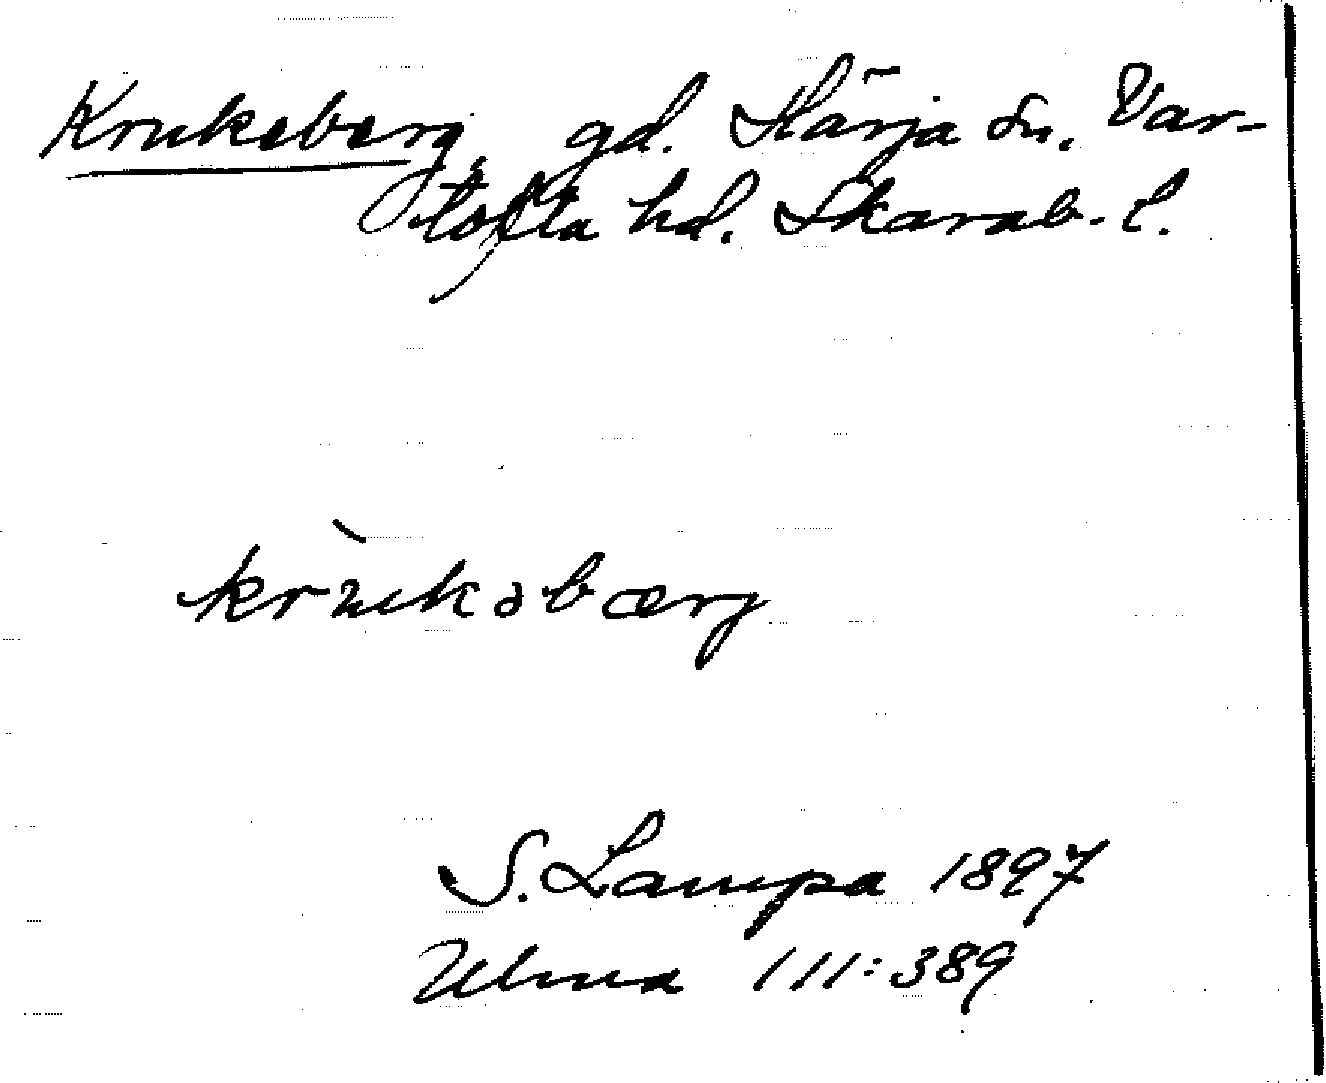 Krukeberg, gd. Härja sn. Var-
tofta hd. Skarab. l.
krùkəbærj
S. Lampa 1897
Ulma 111:389